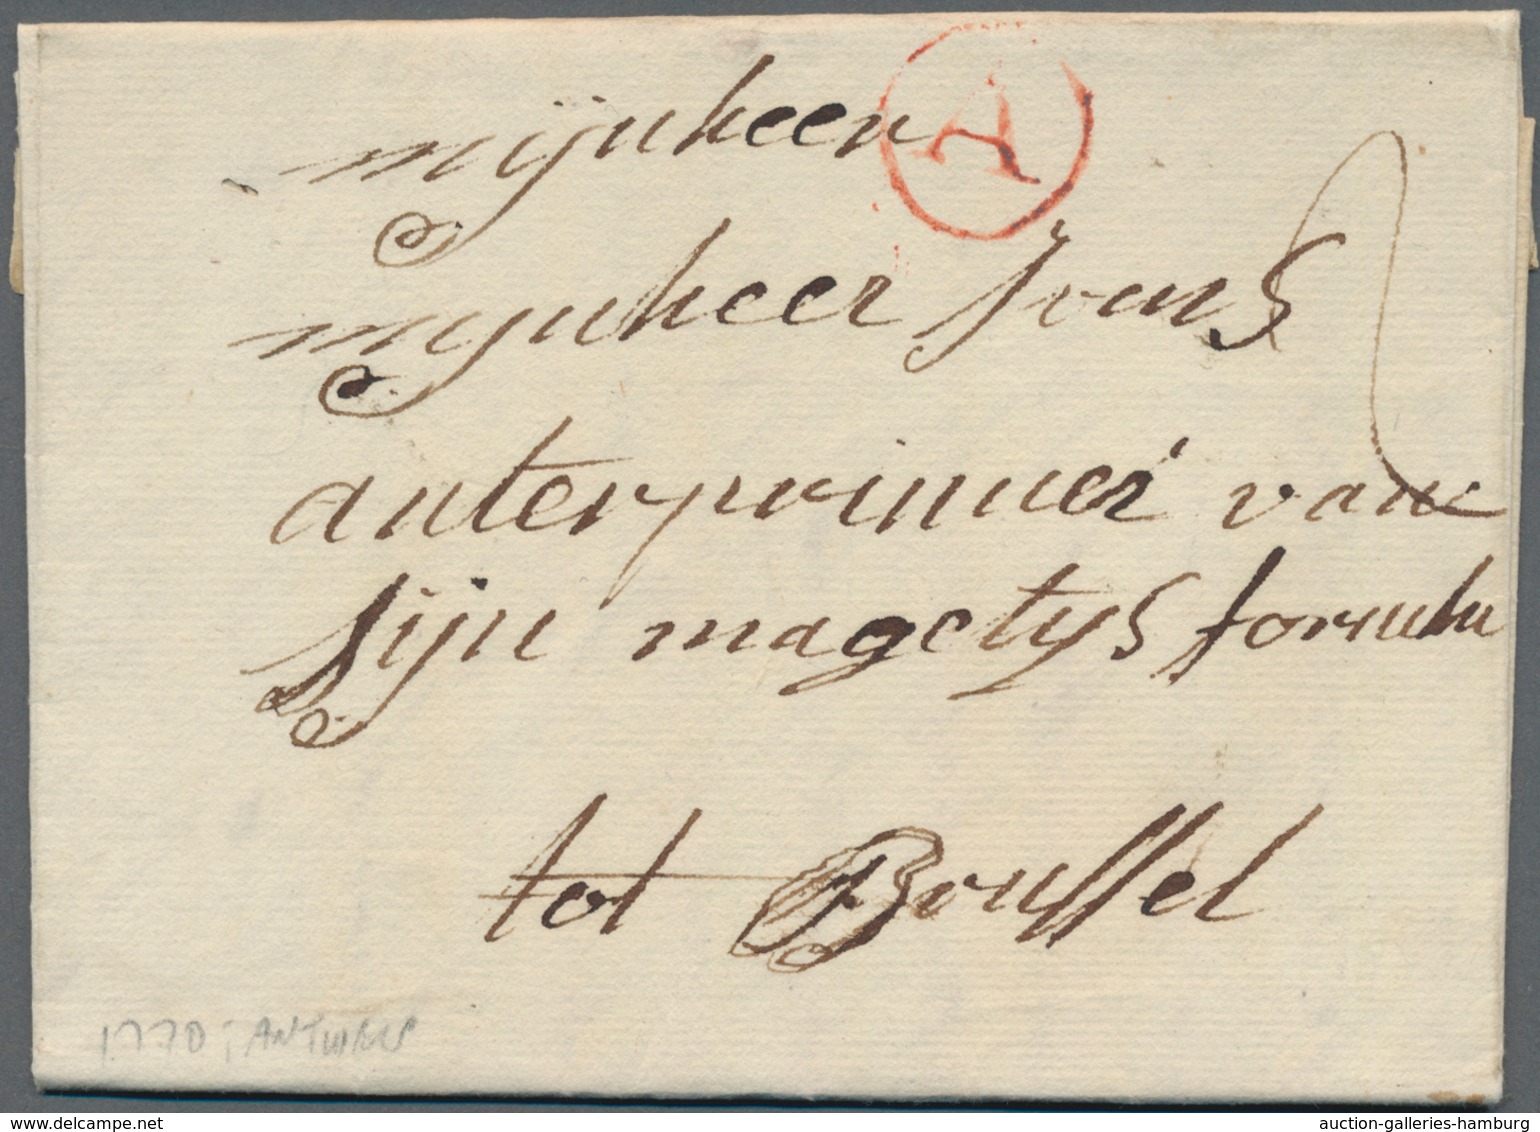 A
mijnheer
mynheer Jvans
anterprinner van
sijn magetys fornuhu
tot Boussel
1770; ANTWERP
auction-galleries-hamburg